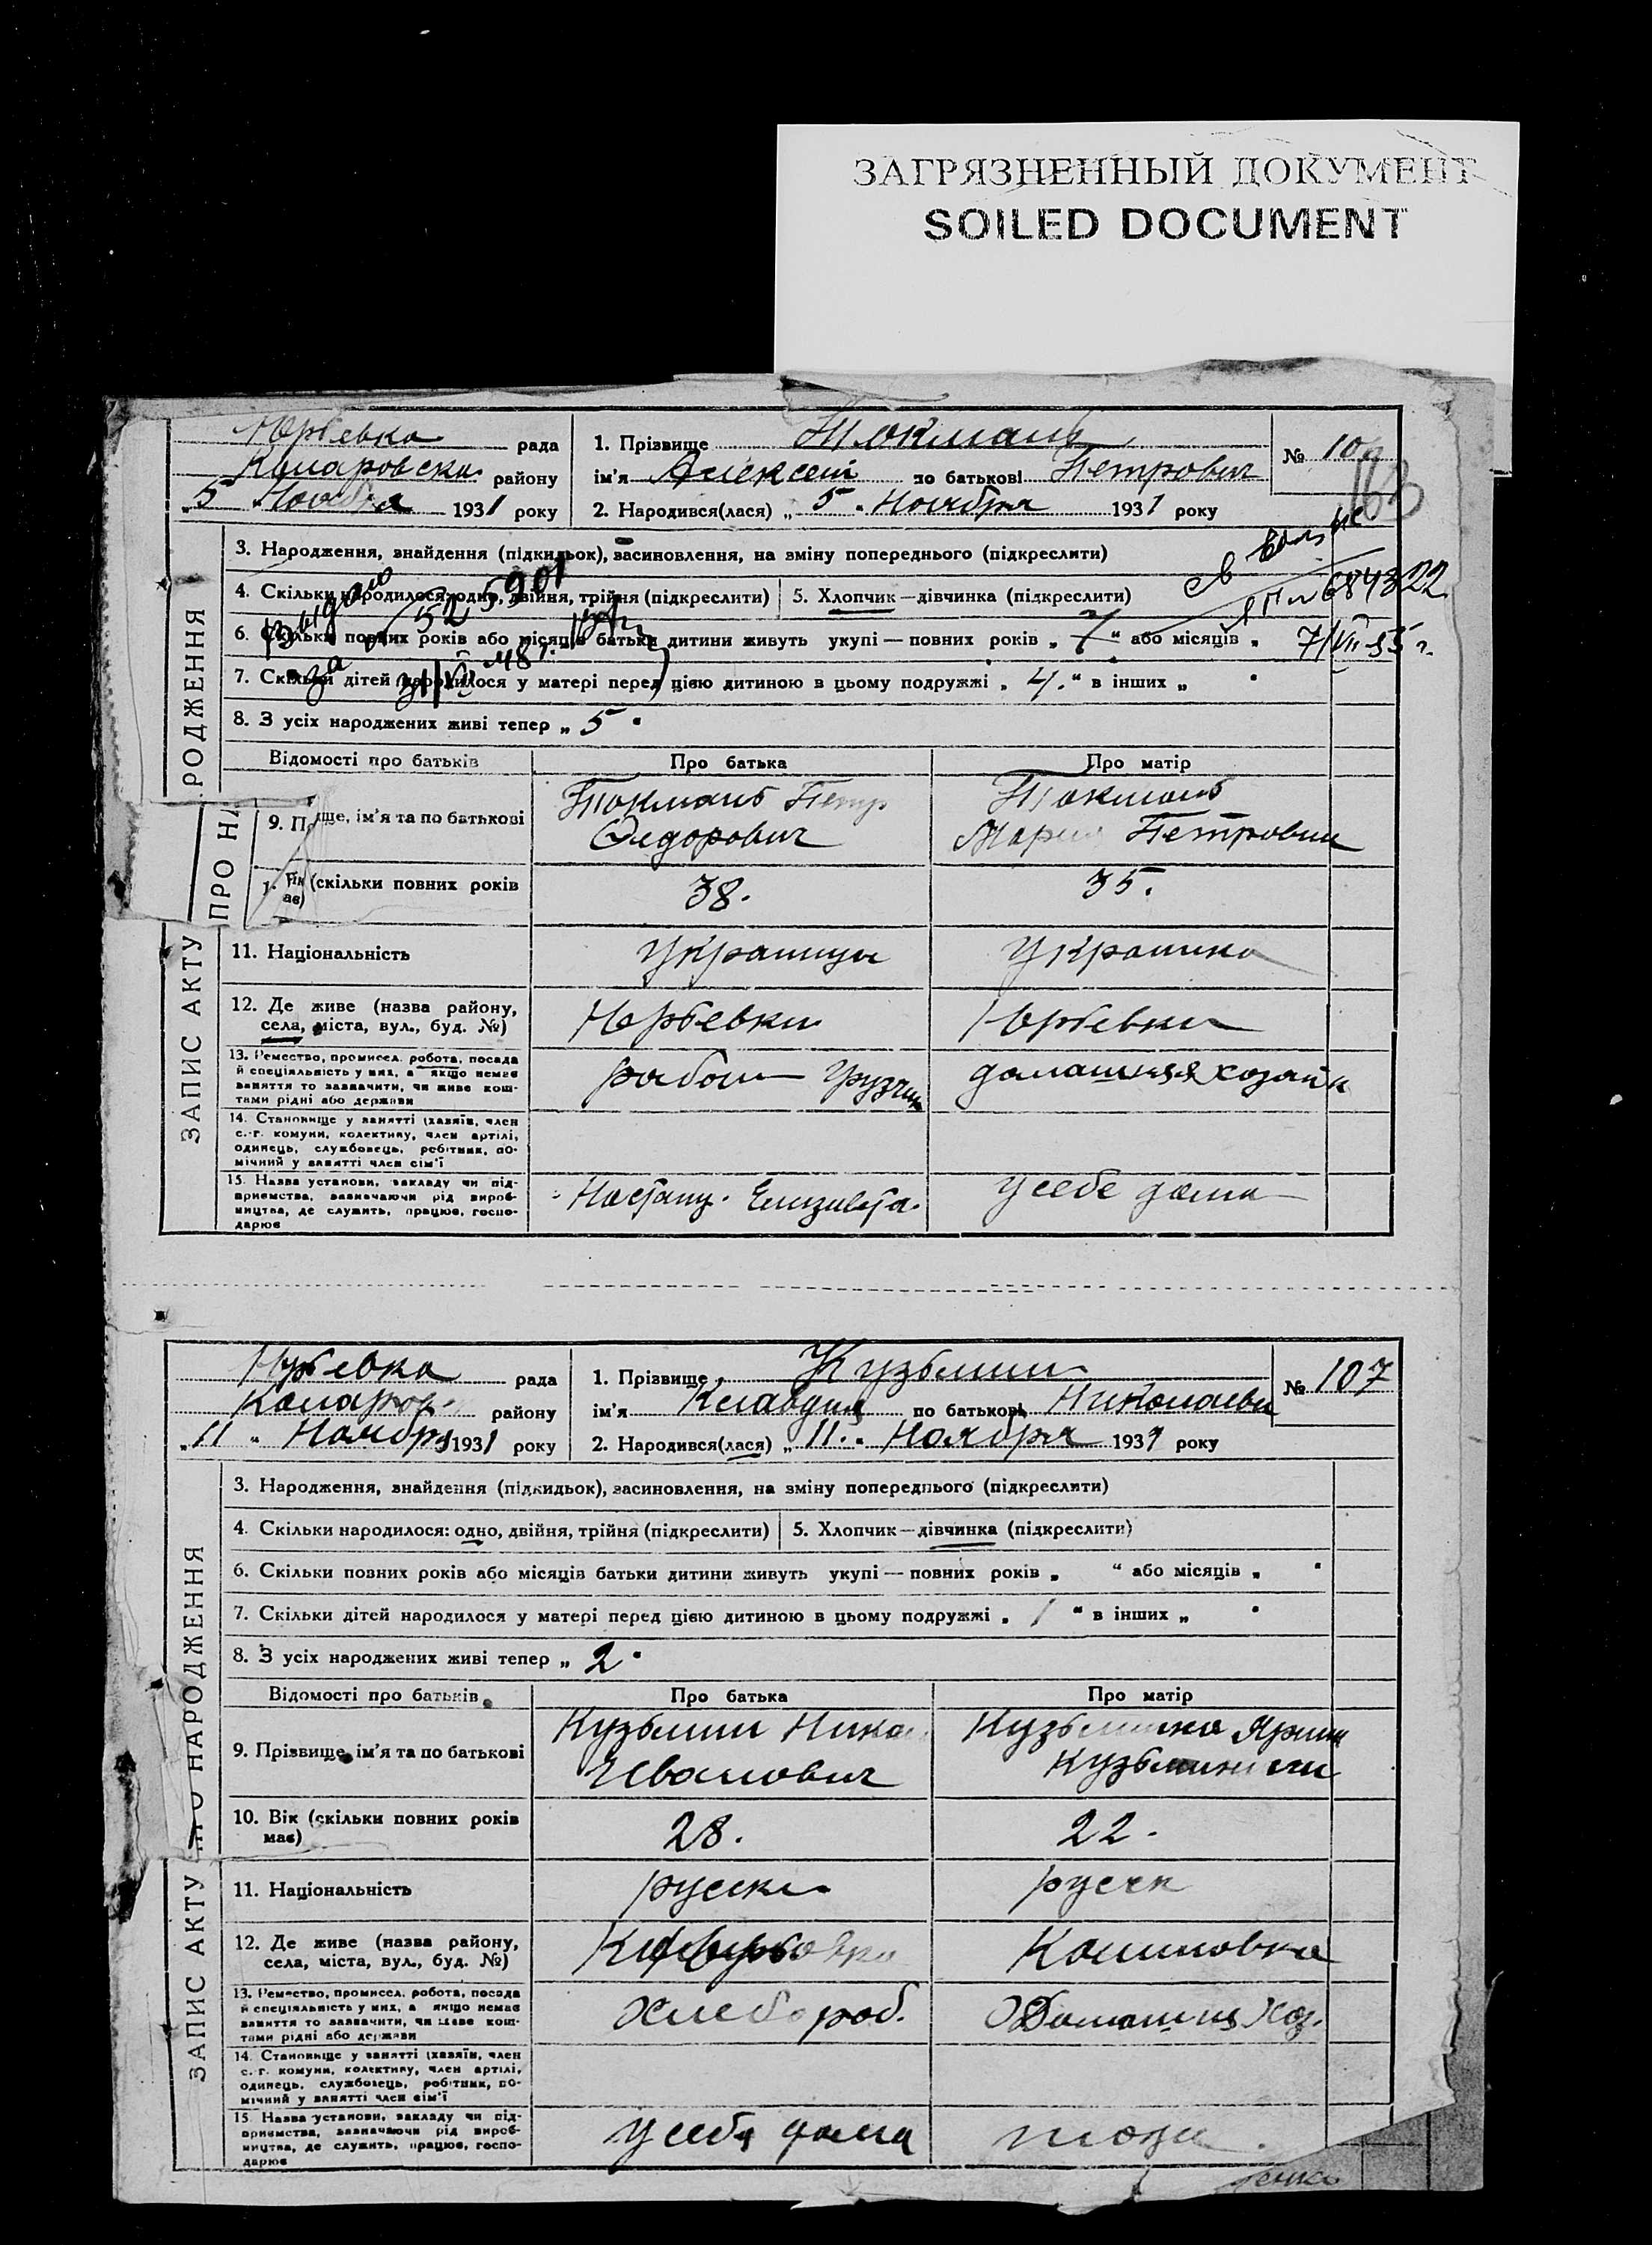 ЗАГРЯЗНЕННЫЙ ДОКУМЕНТ
SOILED DOCUMENT
Юрьевка рада
1. Прізвище Токмань
№ 10
Комаровски району
ім'я Алексей по батькові Петрович
163
„5„ Ноября 1931 року
2. Народився(лася) „5„ Ноября 1931 року
3. Народження, знайдення (підкидьок), засиновлення, на зміну попереднього (підкреслити)
4. Скільки народилося: одно, двійня, трійня (підкреслити) 5. Хлопчик—дівчинка (підкреслити)
684322
Видано
52 5901
6. Скільки повних років або місяців батьки дитини живуть укупі — повних років „7“ або місяців „
7/VII-55 г.
за 48 г.
7. Скільки дітей народилося у матері перед цією дитиною в цьому подружжі „4.“ в інших „ “
8. З усіх народжених живі тепер „5“
Відомості про батьків Про батька Про матір
9. Пр ще, ім'я та по батькові
Токмань Петр
Федорович
Токмань
Мария Петровна
Вік (скільки повних років
ає)
38.
35.
11. Національність
украинцы
украинка
12. Де живе (назва району,
села, міста, вул., буд. №)
Юрьевки
Юрьевки
13. Ремество, промисел, робота, посада
й спеціяльність у них, а якщо немає
заняття то зазначити, чи живе кош-
тами рідні або держави
рабочи грузчик
домашняя хозяйк
14. Становище у занятті (хазяїн, член
с.-г. комуни, колективу, член артілі,
одинець, службовець, робітник, по-
мічний у занятті член сім'ї
15. Назва установи, закладу чи під-
приємства, зазначаючи рід вироб-
ництва, де служить, працює, госпо-
дарює
На станц. Елизавета.
у себе дома
ЗАПИС АКТУ ПРО НА РОДЖЕННЯ
Юрьевка рада
1. Прізвище Кузьмин
№ 107
Комаров району
ім'я Клавдия по батькові Николаевн
„11„ Ноября 1931 року
2. Народився(лася) „11.„ Ноября 1931 року
3. Народження, знайдення (підкидьок), засиновлення, на зміну попереднього (підкреслити)
4. Скільки народилося: одно, двійня, трійня (підкреслити) 5. Хлопчик—дівчинка (підкреслити)
6. Скільки повних років або місяців батьки дитини живуть укупі — повних років „ “ або місяців „ “
7. Скільки дітей народилося у матері перед цією дитиною в цьому подружжі „1“ в інших „ “
8. З усіх народжених живі тепер „2“
Відомості про батьків Про батька Про матір
9. Прізвище, ім'я та по батькові
Кузьмин Никол
Иванович
Кузьминка Ярин
Кузьминични
10. Вік (скільки повних років
має)
28.
22.
11. Національність
руски
руск
12. Де живе (назва району,
села, міста, вул., буд. №)
Калиновка
13. Ремество, промисел, робота, посада
й спеціяльність у них, а якщо немає
заняття то зазначити, чи живе кош-
тами рідні або держави
Хлебороб.
Домашня хоз.
14. Становище у занятті (хазяїн, член
с.-г. комуни, колективу, член артілі,
одинець, службовець, робітник, по-
мічний у занятті член сім'ї
15. Назва установи, закладу чи під-
приємства, зазначаючи рід вироб-
ництва, де служить, працює, госпо-
дарює
у себя дома
тоже
ЗАПИС АКТУ ПРО НАРОДЖЕННЯ